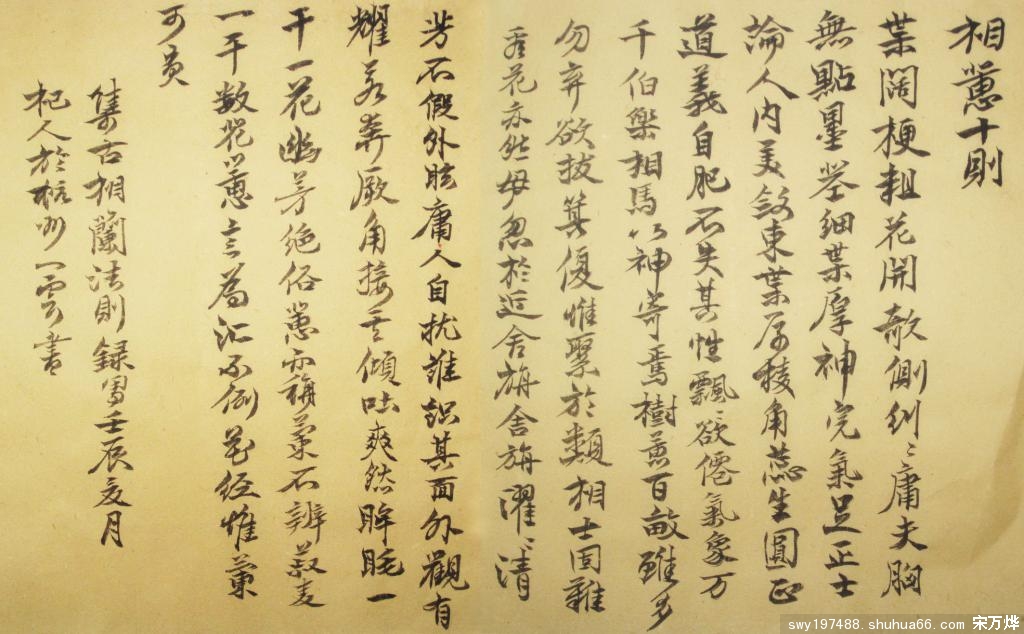 相蕙十则
葉闊梗粗花開欹側纠々庸夫胸
無點墨茎细葉厚神完氣足正士
論人内美斂束葉厚稜角蕊生圓正
道義自肥不失其性飄々欲僊氣象万
千伯樂相馬以神寄焉樹蕙百畝雖多
勿弃欲拔其優惟聚於類相士固難
看花亦然毋忽於近舍旃舍旃濯々清
芳不假外眩庸人自扰誰识其面外觀有
耀若弃厥角接之傾吐爽然眸眊一
干一花幽芳绝俗蕙而稱蘭不辨菽麦
一干数花蕙之為汇不例花经惟蘭
可貢
集古相蘭法則録寫壬辰夏月
杞人於杭州一雲書
swy197488. shuhua66. com 宋万烨